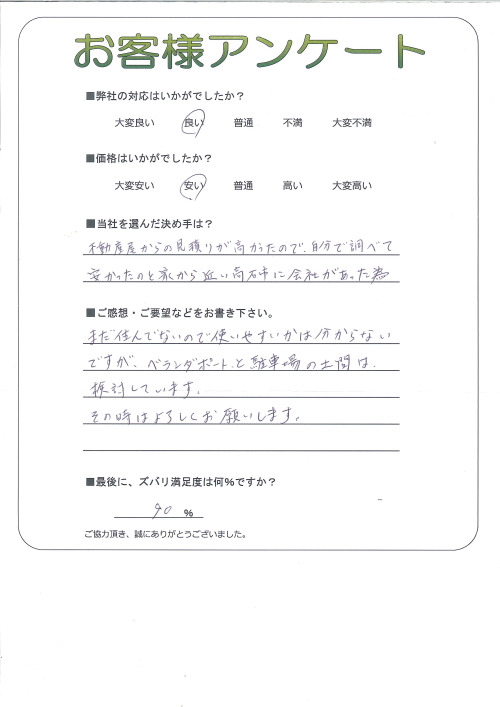 お客様アンケート
■弊社の対応はいかがでしたか？
大変良い 良い 普通 不満 大変不満
■価格はいかがでしたか？
大変安い 安い 普通 高い 大変高い
■当社を選んだ決め手は？
不動産屋からの見積りが高かったので、自分で調べて
安かったのと家から近い高石市に会社があった為
■ご感想・ご要望などをお書き下さい。
まだ住んでないので使いやすいかは分からない
ですが、ベランダポートと駐車場の土間は、
検討しています。
その時はよろしくお願いします。
■最後に、ズバリ満足度は何％ですか？
90 ％
ご協力頂き、誠にありがとうございました。